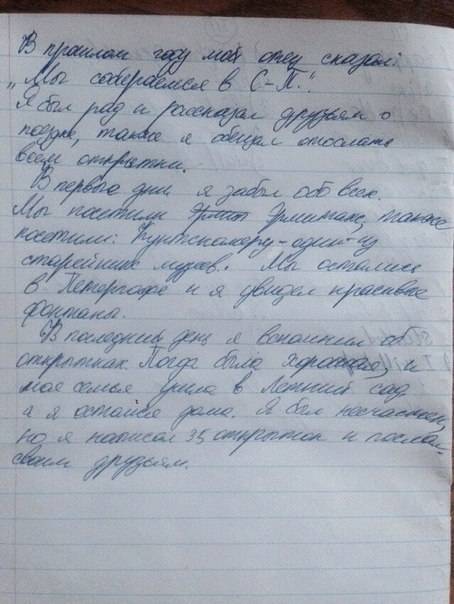 В прошлом году мой отец сказал:
„Мы собираемся в С-П."
Я был рад и рассказал друзьям о
поездке, также я обещал отослать
всем открытки.
В первые дни я забыл об всех.
Мы посетили Эрмитаж, также
посетили: Кунтскамеру-один-из
старейших музеев. Мы остались
в Петергофе и я увидел красивые
фонтаны.
В последний день я вспомнил об
открытках. Погода была хорошая, и
моя семья ушла в Летний сад
а я остался дома. Я был несчастен,
но я написал 35 открыток и послал
своим друзьям.